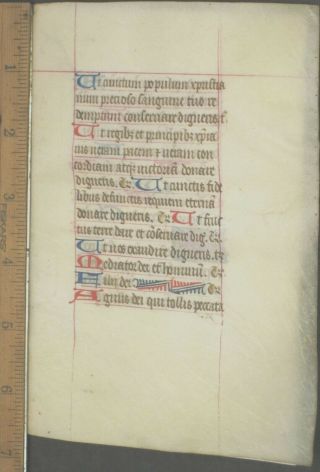 Ut cunctum populum xp̄istia
num precioso sanguine tuo re
demptum conseruare digneris. t̄.
Ut regib; et principib; xp̄ia
nis ueram pacem ⁊ ueram con
cordiam atq; uictoriā donare
digneris. t̄r Ut cunctis fide
libus defunctis requiem eternā
donare digneris. t̄r Ut fruc
tus terre dare et cōseruare dig̃. t̄r.
Ut nos exaudire digneris. t̄r
Mediator dei et hominū. t̄r.
Fili dei
Agnus dei qui tollis peccata
1
2
3
4
5
6
7